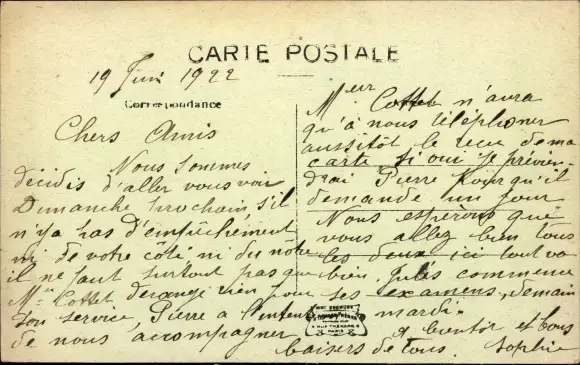 CARTE POSTALE
19 Juin 1922
Correspondance
Chers Amis
Nous sommes
décidés d'aller vous voir
Dimanche prochain, s'il
n'y a pas d'empêchement
ni de votre côté ni du nôtre
il ne faut surtout pas que
Mr Cottet dérange rien pour
son service, Pierre a l'intent
de nous accompagner
Meur Cottet n'aura
qu'à nous téléphoner
aussitôt le reçu de ma
carte si oui je prévien-
drai Pierre pour qu'il
demande un jour.
Nous espérons que
vous allez bien tous
les deux ici tout va
bien. Jules commence
ses examens demain
mardi.
A bientôt et bons
baisers de tous. Sophie